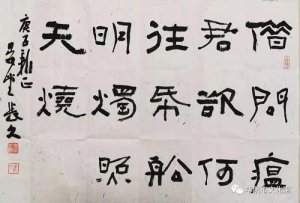 借問瘟
君欲何
往帋船
明燭照
天燒
庚子新正